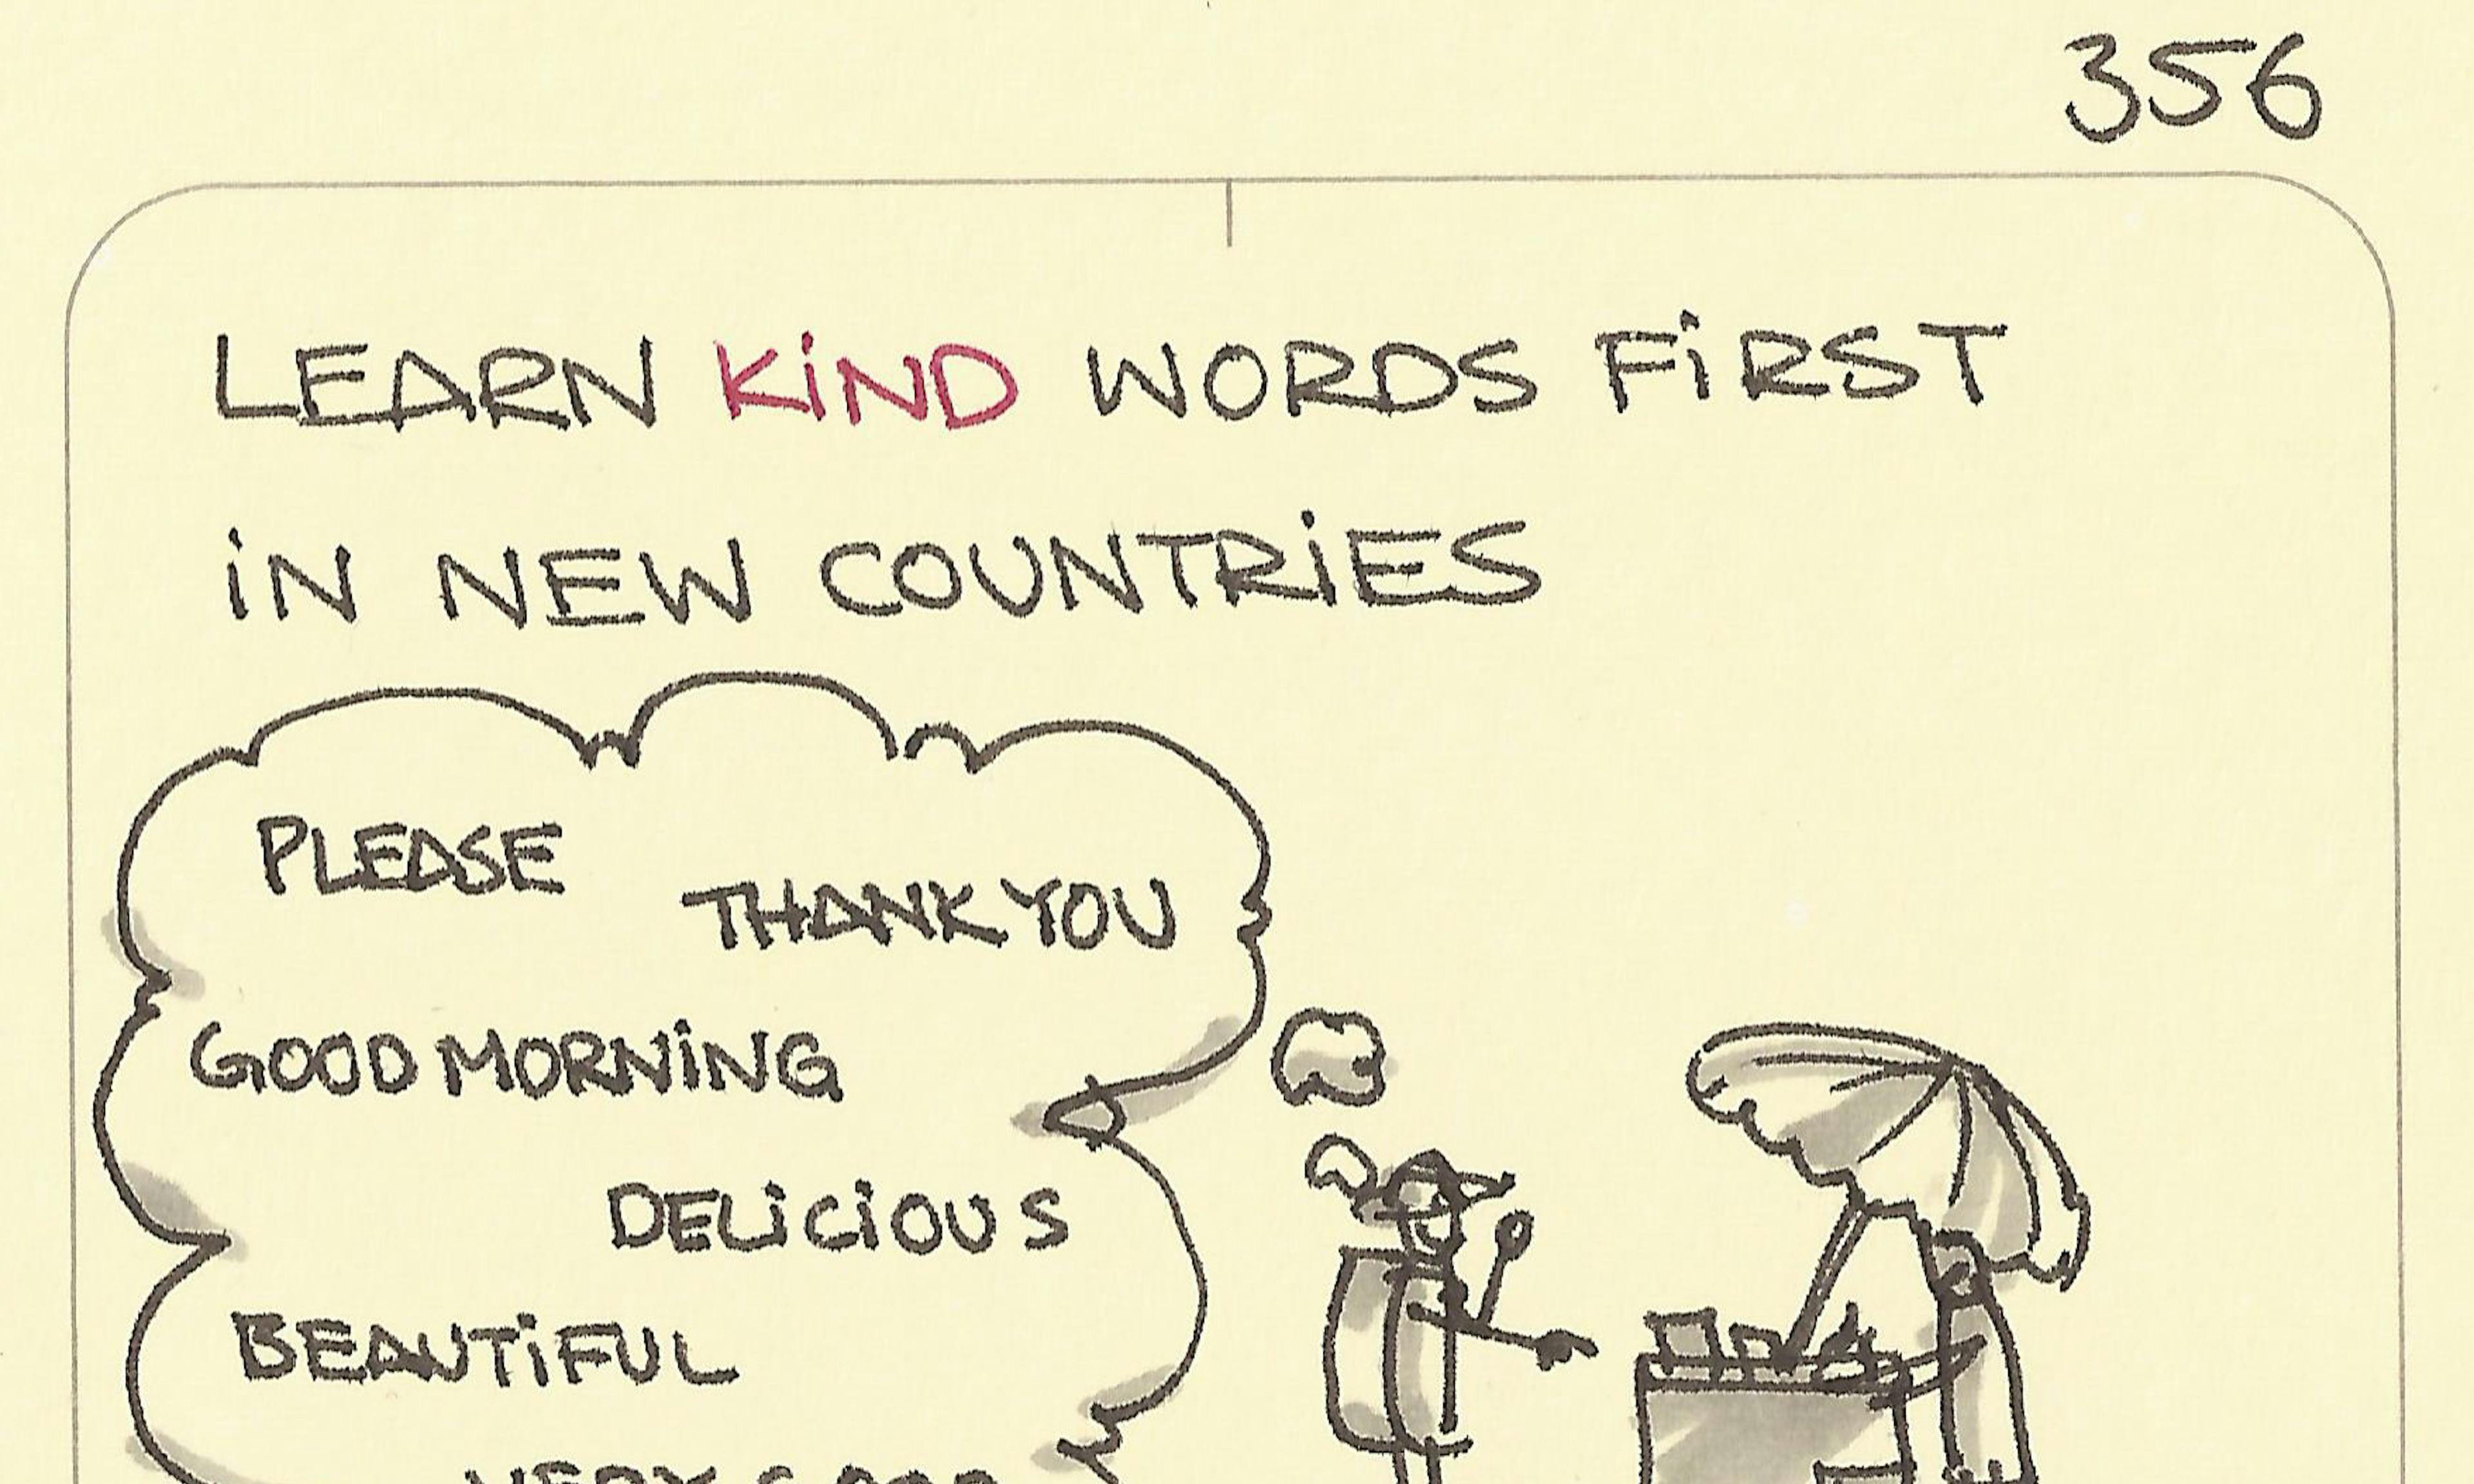 356
LEARN KiND WORDS FiRST
iN NEW COUNTRiES
PLEASE
THANK YOU
GOOD MORNiNG
DELiCiOUS
BEAUTiFUL
VERY GOOD